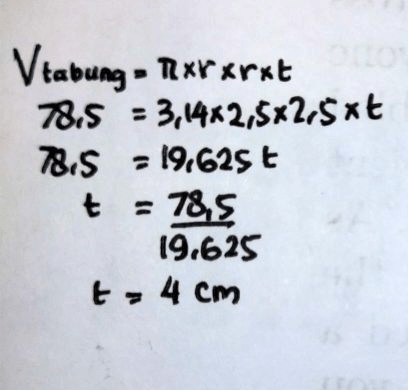 Vtabung = π×r×r×t
78,5 = 3,14×2,5×2,5×t
78,5 = 19,625 t
t = 78,5
19,625
t = 4 cm